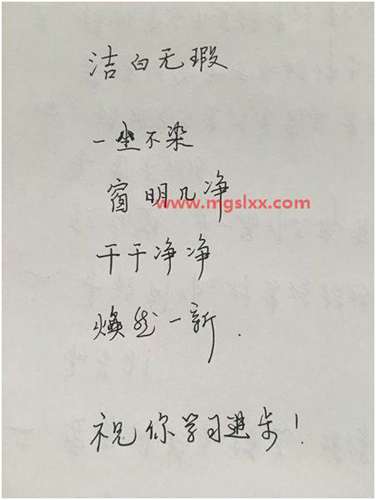 洁白无瑕
一尘不染
窗明几净
www.mgslxx.com
干干净净
焕然一新.
祝你学习进步!